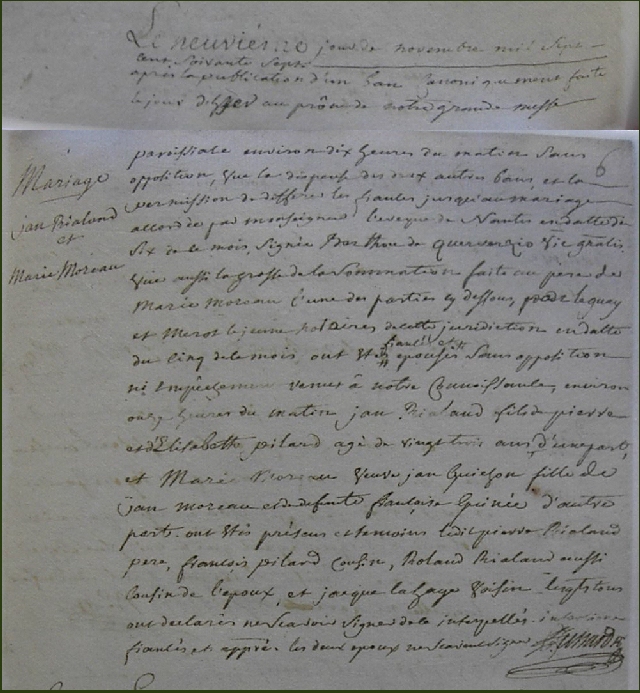 Le neuviesme jour de novembre mil sept
cent soixante sept
apres la publication d'un ban canoniquement faite
le jour d'hyer au prône de notre grande messe
paroissiale environ dix heures du matin sans
opposition, vue la dispense des deux autres bans, et la
permission de differer les fiantes jusqu'au mariage
accordée par monseigneur l'eveque de Nantes en datte du
six de le mois, signée Berthou de querverzio vic. gnal.
vue aussi la grosse de la sommation faite au pere de
Marie Moreau l'une des parties cy dessous, par le quay
et Merot le jeune notaires de cette juridiction en datte
du cinq de le mois ont etés epousés sans opposition
fiancés et
ni empechement venus à notre connoissance, environ
onze heures du matin jan Rialand fils de pierre
et d'Elisabeth pilard agé de vingt trois ans d'une part,
et Marie Moreau veuve jan Guichon fille de
jan moreau et de defunte françoise Guinée d'autre
part. ont etés présens et temoins ledit pierre Rialand
pere, françois pilard cousin, Roland Rialand aussi
cousin de l'epoux, et jacque lahaye voisin lesquels tous
ont declarés ne scavoir signer de le interpellés
fiancés et apprès les deux epoux ne scavent signer
Mariage
jan Rialand
et
Marie Moreau
6